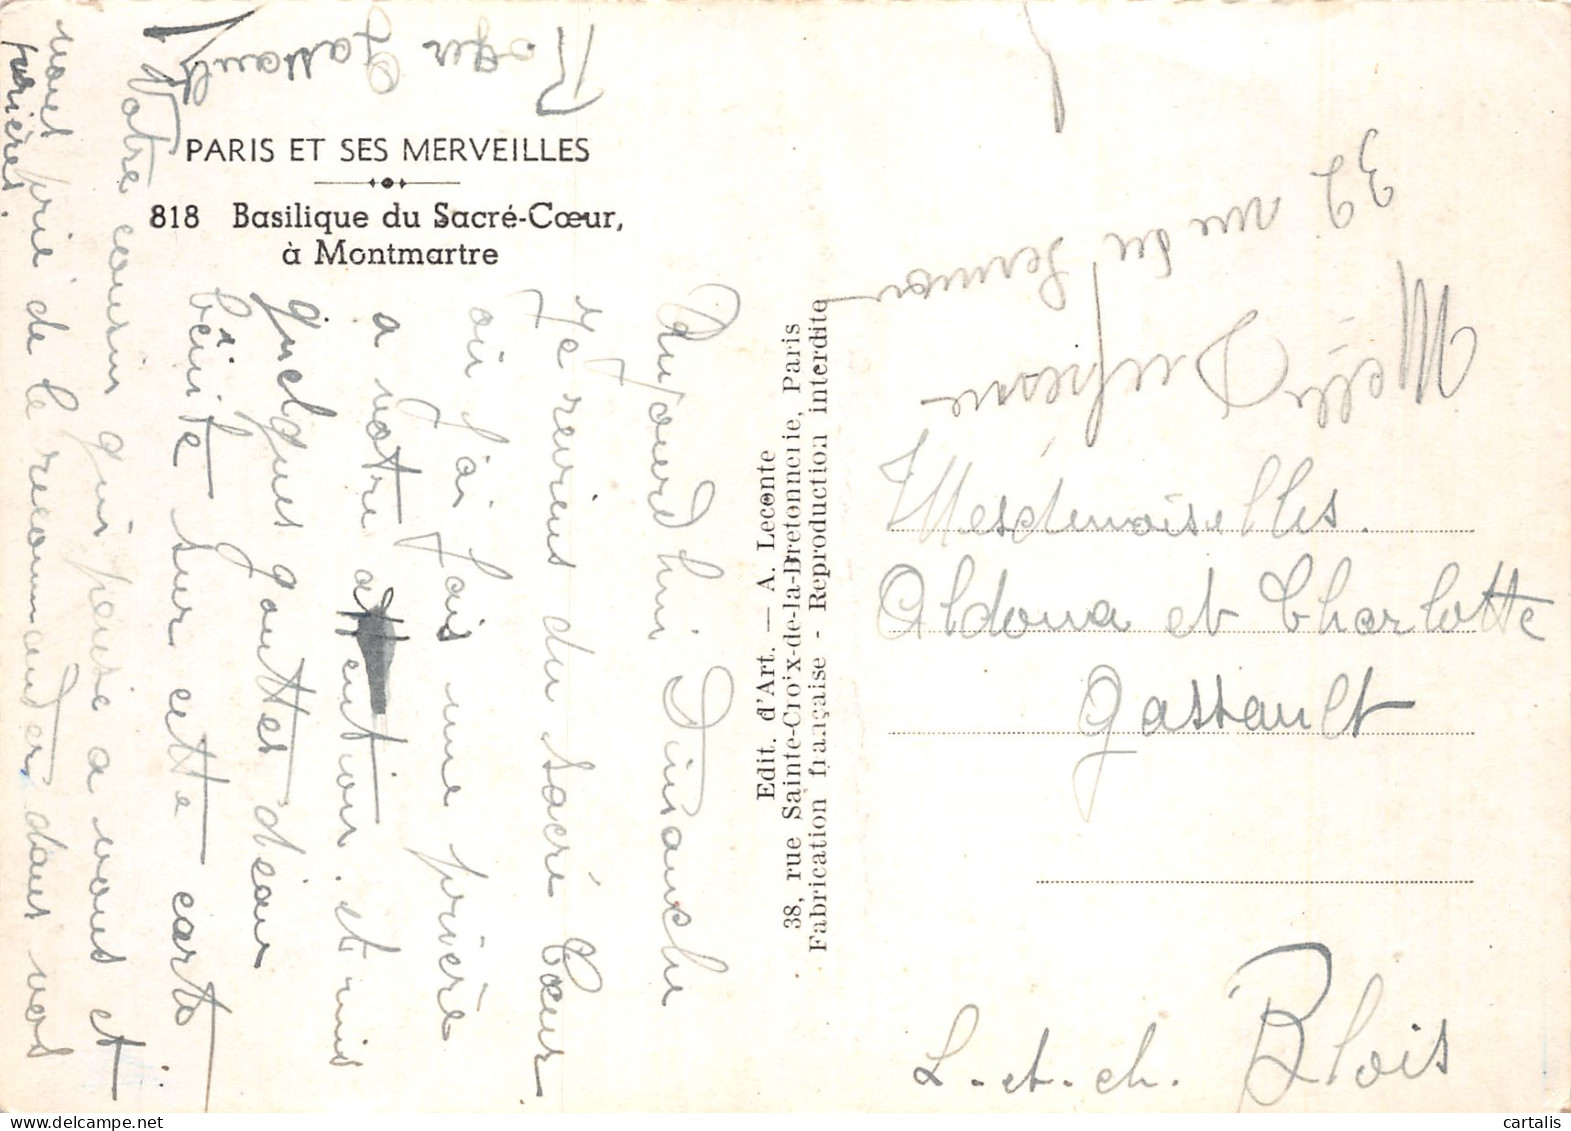 PARIS ET SES MERVEILLES
818 Basilique du Sacré-Cœur,
à Montmartre
Aujourd hui Dimanche
Je reviens du Sacré Cœur
où j'ai fais une prière
a votre attention. et mis
quelques gouttes d'eau
bénite sur cette carte
Votre cousin qui pense a vous et
vous prie de le recommander dans vos
prières.
Roger Gassault
Edit. d'Art. — A. Leconte
38, rue Sainte-Croix-de-la-Bretonnerie, Paris
Fabrication française - Reproduction interdite
Mesdemoiselles.
Aldona et Charlotte
Gassault
Blois
L. et. ch.
Melle Dufresne
39 rue du Sermon
cartalis
delcampe.net